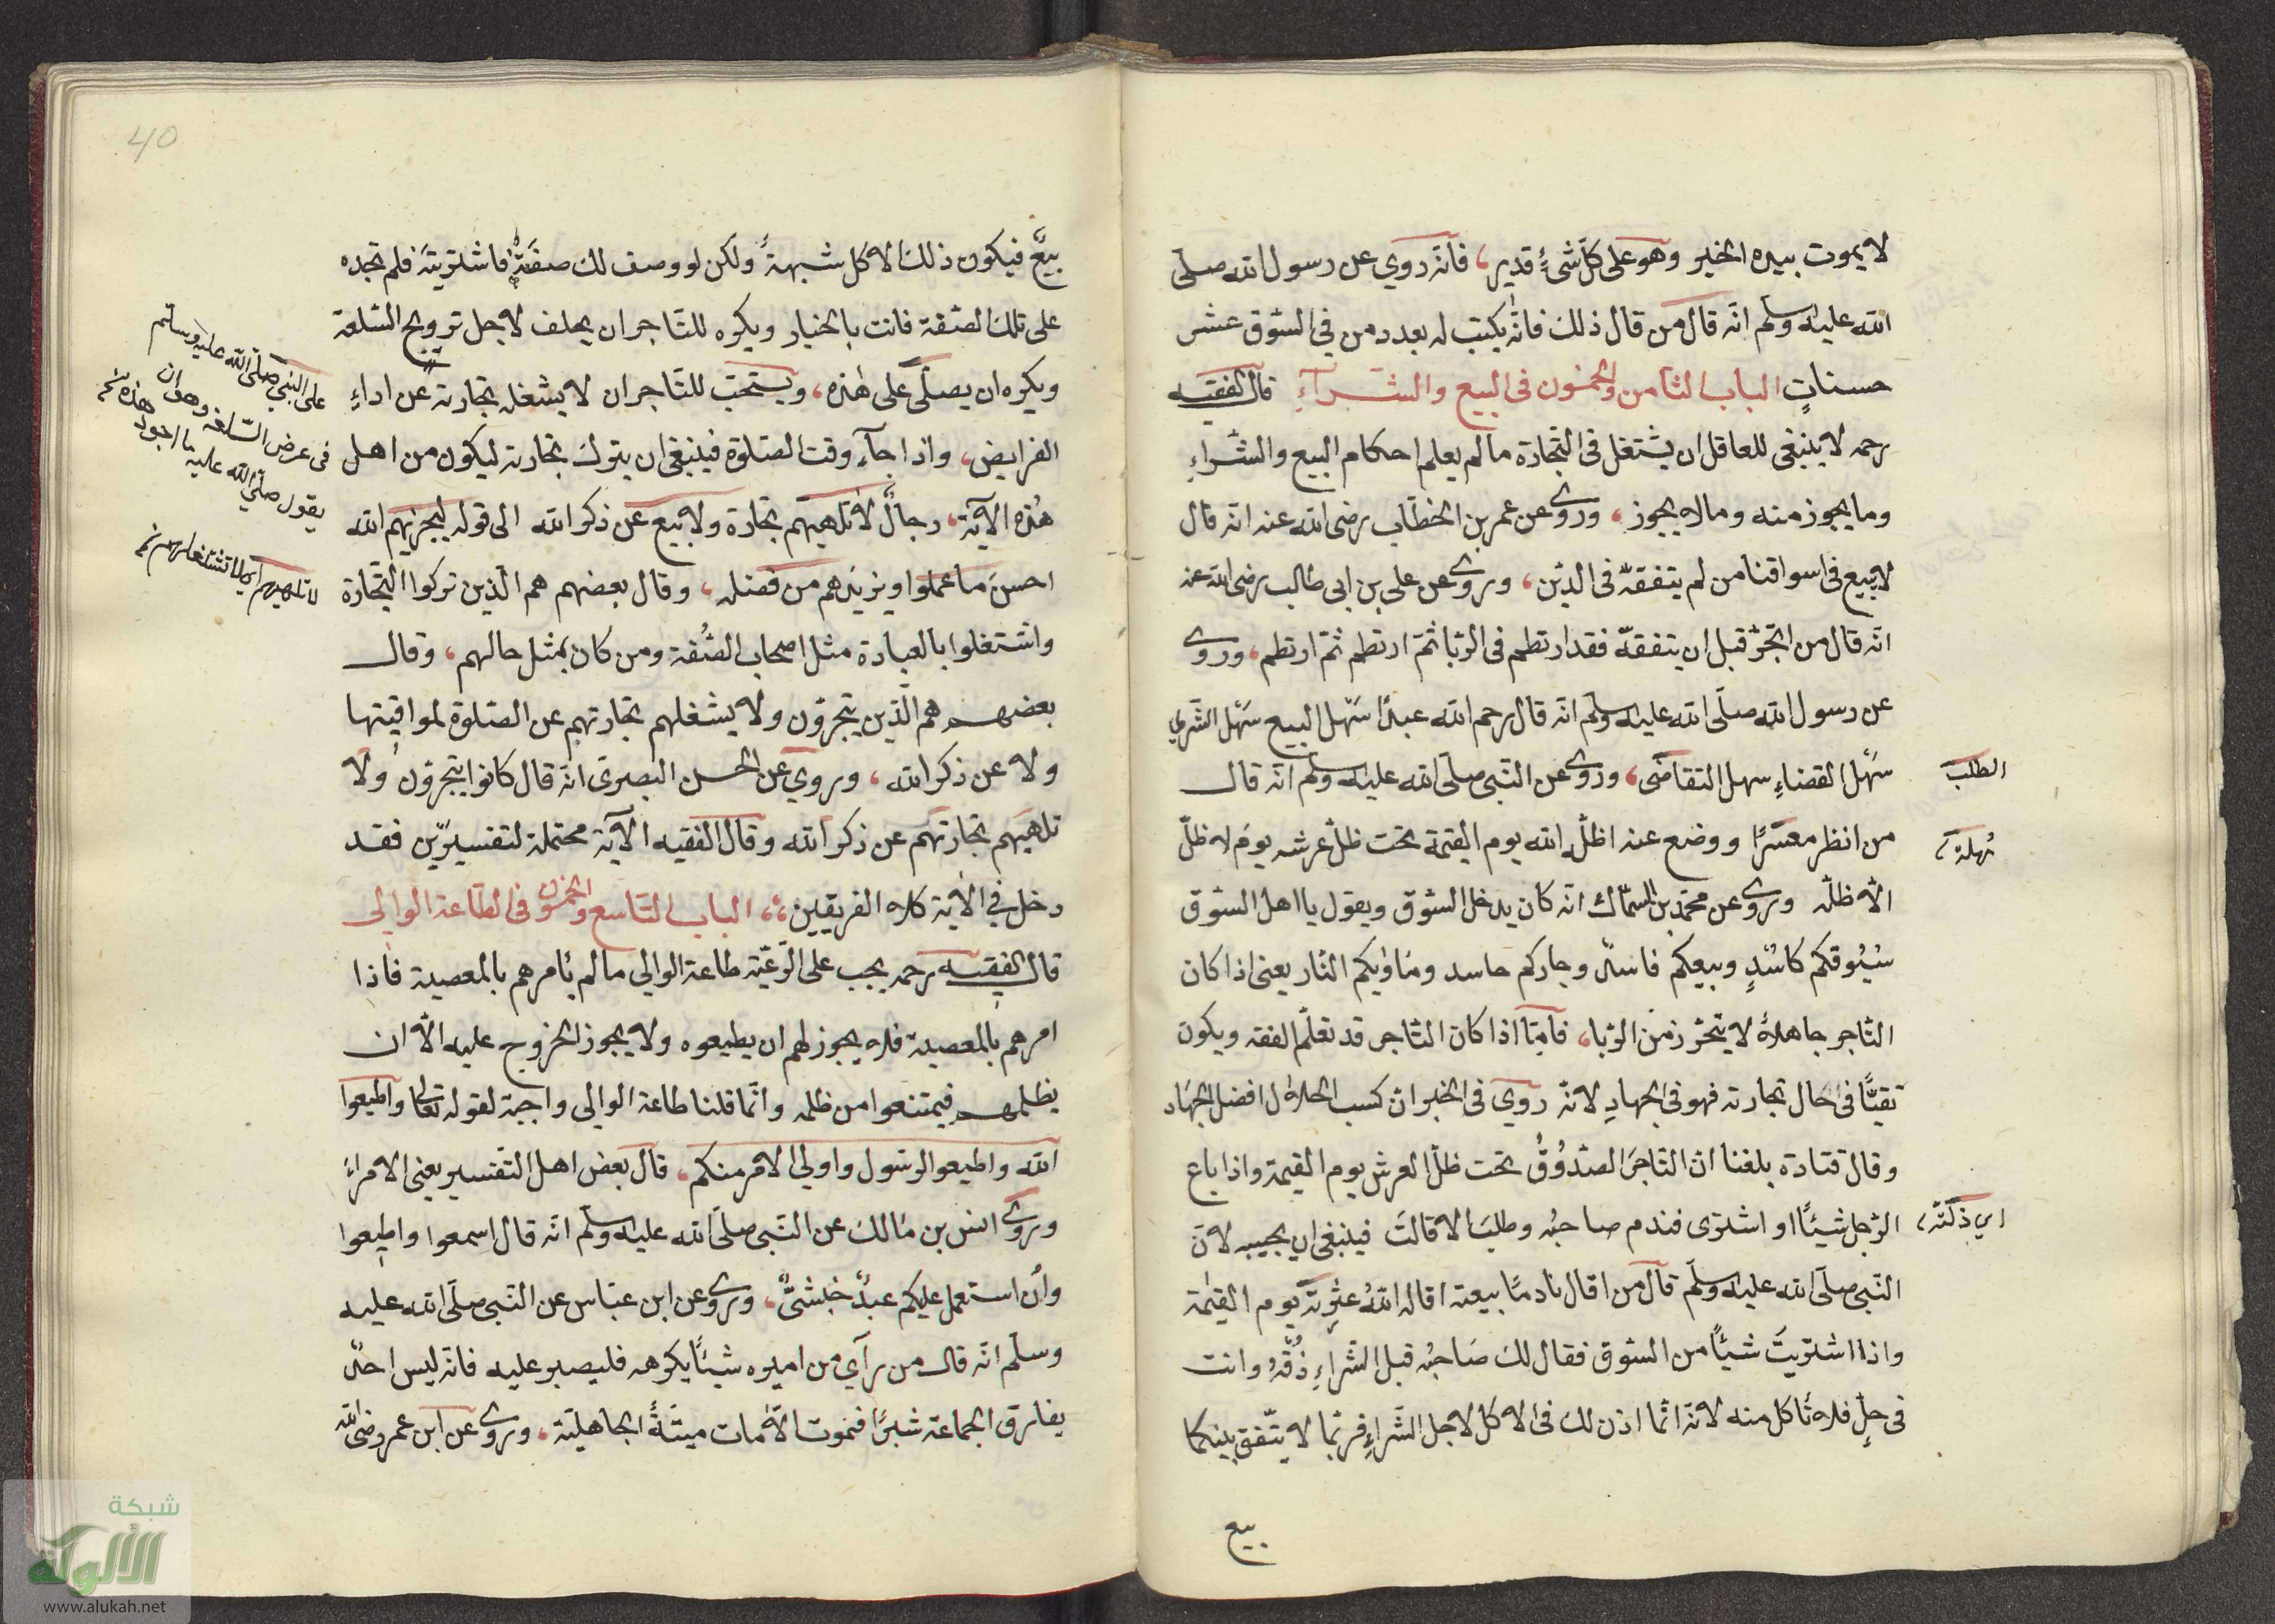 لا يموت بيده الخير وهو على كلّ شئ قدير، فانه روي عن رسول الله صلى
الله عليه وسلم انه قال من قال ذلك فانه يكتب له بعدد من في السّوق عشر
حسنات الباب الثامن والخمسون في البيع والشراء قال الفقيه
رحمه لا ينبغي للعاقل ان يشتغل في التّجارة ما لم يعلم احكام البيع والشراء
وما يجوز منه وما لا يجوز، وروى عن عمر بن الخطاب رضى الله عنه انه قال
لا يبيع في اسواقنا من لم يتفقه في الدين، وروى عن على بن ابى طالب رضى الله عنه
انه قال من اتجر قبل ان يتفقه فقد ارتطم في الربا ثم ارتطم ثم ارتطم، وروى
عن رسول الله صلى الله عليه وسلم انه قال رحم الله عبدًا سهل البيع سهل الشرى
سهل القضاء سهل التقاضى، وروى عن النبى صلى الله عليه وسلم انه قال
الطلب
من انظر معسرًا ووضع عنه اظلّه الله يوم القيمة تحت ظلّ عرشه يوم لا ظلّ
مُهلة
الّا ظلّه وروى عن محمد بن السمّاك انه كان يدخل السّوق ويقول يا اهل السّوق
سُوقكم كاسد وبيعكم فاسد وجاركم حاسد ومأويكم النّار يعنى اذا كان
التاجر جاهلاً لا يتحرّز من الربا، فامّا اذا كان التاجر قد تعلّم الفقه ويكون
تقيًّا في حال تجارته فهو في الجهاد لانه روي في الخبر ان كسب الحلال افضل الجهاد
وقال قتادة بلغنا ان التاجر الصّدوق تحت ظلّ العرش يوم القيمة واذا باع
الرّجل شيئًا او اشترى فندم صاحبه وطلب الاقالت فينبغى ان يجيبه لانّ
اي ذلّته
النّبى صلى الله عليه وسلّم قال من اقال نادمًا بيعته اقاله الله عثرته يوم القيمة
واذا اشتريت شيئًا من السّوق فقال لك صاحبه قبل الشراء ذُقه وانت
في حلّ فلا تأكل منه لانه انّما اذن لك في الاكل لاجل الشراء فربّما لا يتّفق بينكما
بيع
40
بيع فيكون ذلك الاكل شبهة ولكن لو وصف لك صفة فاشتريته فلم تجده
على تلك الصّفة فانت بالخيار ويكره للتاجر ان يحلف لاجل ترويج السّلعة
ويكره ان يصلّى على هذه، ويستحب للتّاجر ان لا يشغله تجارته عن اداء
على النبى صلى الله عليه وسلم
في عرض السّلعة وهو ان
يقول صلى الله عليه ما اجود هذه
الفرايض، واذا جاء وقت الصّلوة فينبغى ان يترك تجارته ليكون من اهل
هذه الآية، رجالٌ لا تلهيهم تجارة ولا بيع عن ذكر الله الى قوله ليجزيهم الله
احسن ما عملوا ويزيدهم من فضله، وقال بعضهم هم الّذين تركوا التّجارة
لا تلهيهم اي لا تشغلهم
واشتغلوا بالعبادة مثل اصحاب الصُّفة ومن كان بمثل حالهم، وقال
بعضهم هم الّذين يتجرون ولا يشغلهم تجارتهم عن الصّلوة لمواقيتها
ولا عن ذكر الله، وروي عن الحسن البصرى انه قال كانوا يتجرون ولا
تلهيهم تجارتهم عن ذكر الله وقال الفقيه الآية محتملة لتفسيرين فقد
دخل في الآية كلا الفريقين، الباب التّاسع والخمسون في الطّاعة الوالي
قال الفقيه رحمه يجب على الرّعيّة طاعة الوالي ما لم يأمرهم بالمعصية فاذا
امرهم بالمعصية فلا يجوز لهم ان يطيعوه ولا يجوز الخروج عليه الّا ان
يظلمهم فيمتنعوا من ظلمه وانّما قلنا طاعة الوالي واجبة لقوله تعالى واطيعوا
الله واطيعوا الرسول واولي الامر منكم، قال بعض اهل التّفسير يعنى الامراء
وروى انس بن مالك عن النّبى صلى الله عليه وسلم انه قال اسمعوا واطيعوا
وان استعمل عليكم عبدٌ حبشىّ، وروى عن ابن عبّاس عن النّبى صلى الله عليه
وسلّم انه قال من رآي من اميره شيئًا يكرهه فليصبر عليه فانه ليس احدٌ
يفارق الجماعة شبرًا فيموت الّا مات ميتةً الجاهليّة، وروى عن ابن عمر رضى الله
شبكة
الألوكة
www.alukah.net